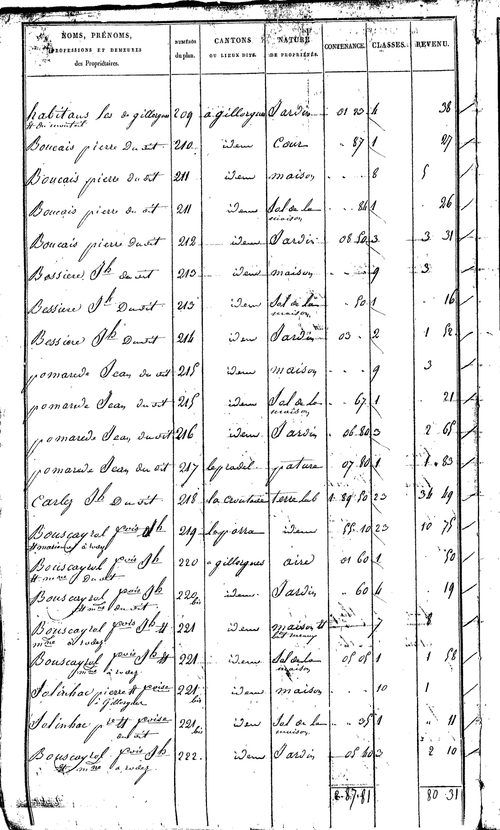 NOMS, PRÉNOMS, PROFESSIONS ET DEMEURES des Propriétaires. NUMÉRO du plan. CANTONS OU LIEUX DITS. NATURE DE PROPRIÉTÉS. CONTENANCE. CLASSES. REVENU.
habitans les de gillorgues 209 a gillorgues Jardin 01 20 4 38
Boucais pierre du dit 210 idem Cour 87 1 27
Boucais pierre du dit 211 idem maison 8 5
Boucais pierre du dit 211 idem Sol de la maison 86 1 26
Boucais pierre du dit 212 idem Jardin 08 50 3 3 31
Bessiere Jh du dit 213 idem maison 9 3
Bessiere Jh Du dit 213 idem Sol de la maison 50 1 16
Bessiere Jh Du dit 214 idem Jardin 03 2 1 52
pomarede Jean du dit 215 idem maison 9 3
pomarede Jean du dit 215 idem Sol de la maison 67 1 21
pomarede Jean du dit 216 idem Jardin 06 80 3 2 65
pomarede Jean du dit 217 le pradel pature 07 80 1 1 83
Carles Jh Du dit 218 la terre lab 1 89 50 23 34 49
Bouscayrol fois Jh à rodez 219 idem 55 10 23 10 75
Bouscayrol fois Jh Du dit 220 a gillorgues aire 01 60 1 50
Bouscayrol fois Jh du dit 220 bis idem Jardin 60 4 19
Bouscayrol fois Jh à rodez 221 idem maison 7 8
Bouscayrol fois Jh à rodez 221 idem Sol de la maison 05 05 1 1 58
Solinhac pierre à Gillorgues 221 bis idem maison 10 1
Solinhac pre du dit 221 bis idem Sol de la maison 35 1 11
Bouscayrol fois Jh à rodez 222 idem Jardin 05 40 3 2 10
2 87 81 80 31